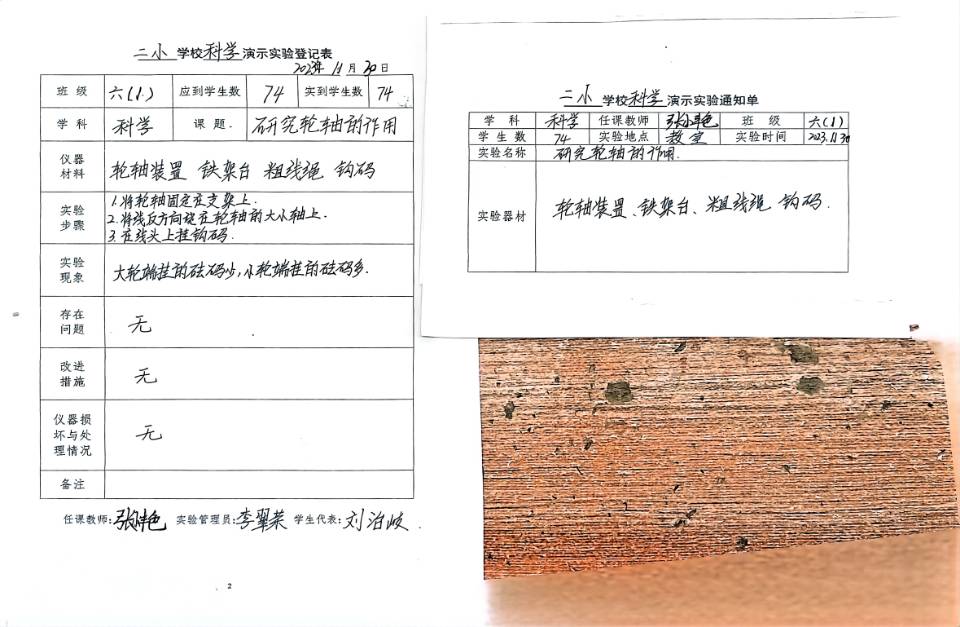 二小 学校科学演示实验登记表
2023年 11月 30日
班级 六(1) 应到学生数 74 实到学生数 74
学科 科学 课题. 研究轮轴的作用
仪器材料 轮轴装置 铁架台 粗线绳 钩码
实验步骤 1.将轮轴固定在支架上.
2.将线反方向绕在轮轴的大小轴上.
3.在线头上挂钩码.
实验现象 大轮端挂的砝码少,小轮端挂的砝码多.
存在问题 无
改进措施 无
仪器损坏与处理情况 无
备注
任课教师: 实验管理员:李翠荣 学生代表:刘泊岐.
2
二小 学校科学演示实验通知单
学科 科学 任课教师 班级 六(1)
学生数 74 实验地点 教室 实验时间 2023.11.30
实验名称 研究轮轴的作用.
实验器材 轮轴装置、铁架台、粗线绳 钩码.